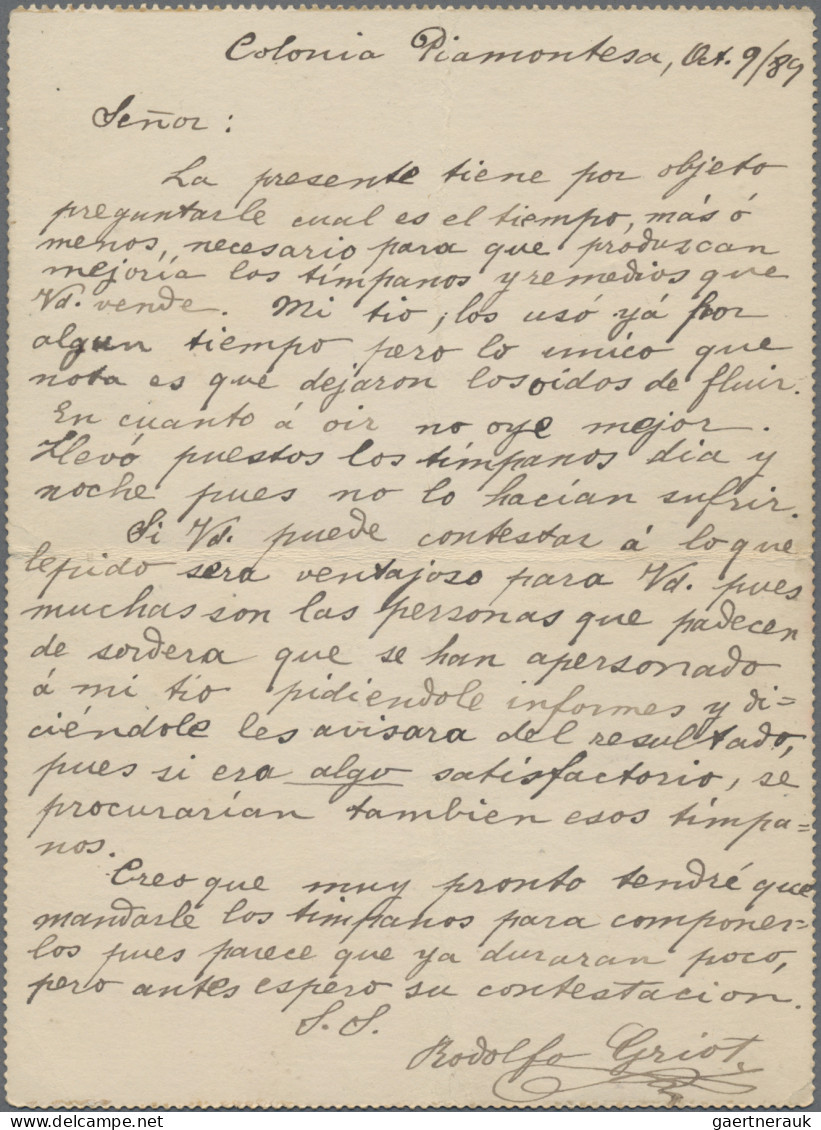 Colonia Piamontesa, Oct. 9/89
Señor:
La presente tiene por objeto
preguntarle cual es el tiempo, más ó
menos, necesario para que produscan
mejoría los tímpanos y remedios que
Vd. vende. Mi tio, los usó yá por
algun tiempo pero lo unico que
nota es que dejaron los oidos de fluir.
En cuanto á oir no oye mejor.
Llevó puestos los tímpanos dia y
noche pues no lo hacían sufrir.
Si Vd. puede contestar á lo que
le pido sera ventajoso para Vd. pues
muchas son las personas que padecen
de sordera que se han apersonado
á mi tio pidiéndole informes y di=
ciéndole les avisara del resultado,
pues si era algo satisfactorio, se
procurarían tambien esos tímpa=
nos.
Creo que muy pronto tendré que
mandarle los tímpanos para componer=
los pues parece que ya duraran poco,
pero antes espero su contestacion.
S. S.
Rodolfo Griot
gaertnerauk